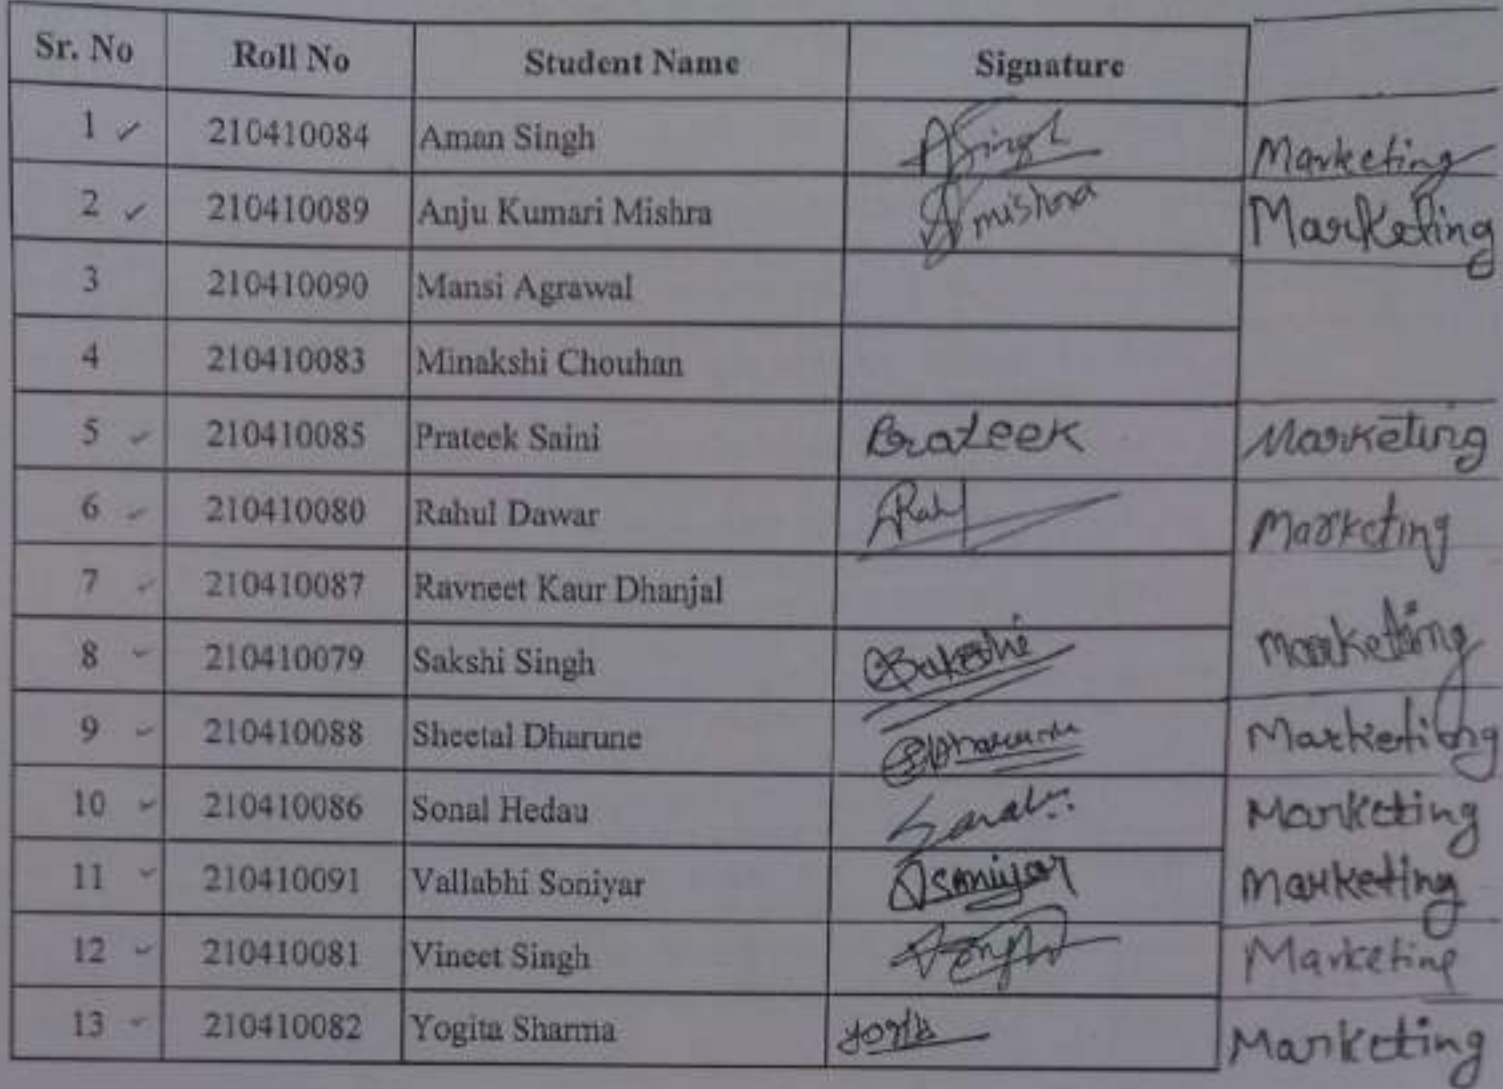 Sr. No Roll No Student Name Signature
1 ✓ 210410084 Aman Singh ASingh Marketing
2 ✓ 210410089 Anju Kumari Mishra Amishra Marketing
3 210410090 Mansi Agrawal
4 210410083 Minakshi Chouhan
5 ✓ 210410085 Prateek Saini Prateek Marketing
6 ✓ 210410080 Rahul Dawar Rah Marketing
7 ✓ 210410087 Ravneet Kaur Dhanjal
8 ✓ 210410079 Sakshi Singh Marketing
9 ✓ 210410088 Sheetal Dharune Marketing
10 ✓ 210410086 Sonal Hedau Marketing
11 ✓ 210410091 Vallabhi Soniyar Vsoniyar Marketing
12 ✓ 210410081 Vineet Singh Marketing
13 ✓ 210410082 Yogita Sharma Marketing